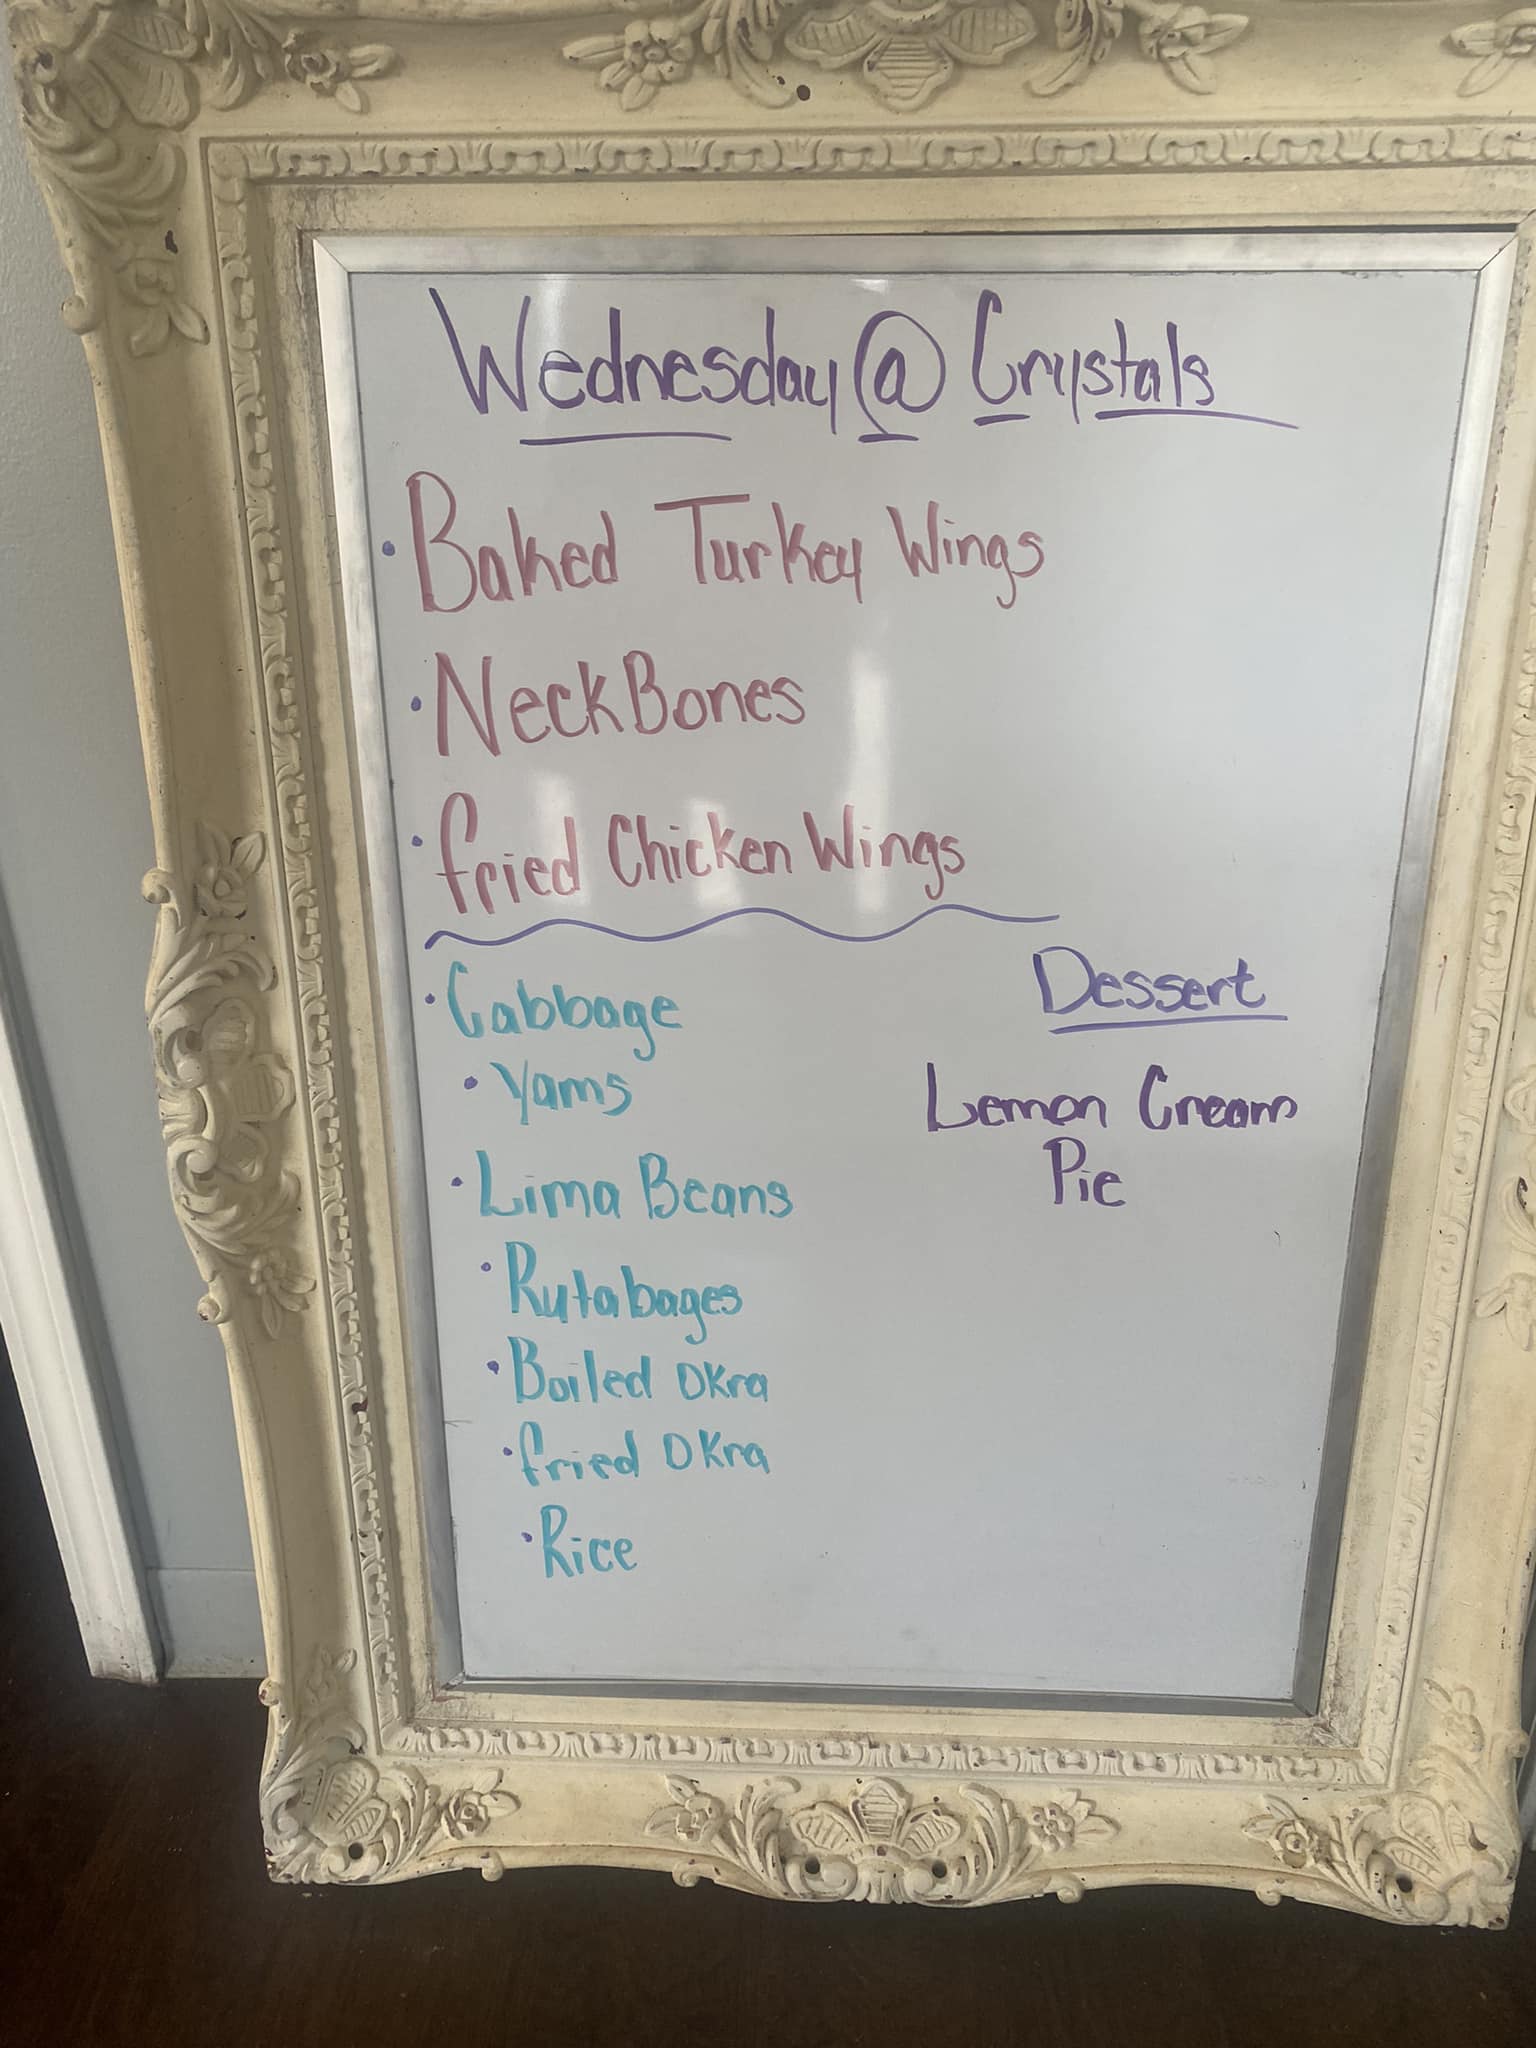 Wednesday @ Crystals
• Baked Turkey Wings
• NeckBones
• fried Chicken Wings
• Cabbage
• Yams
• Lima Beans
• Rutabages
• Boiled OKra
• fried OKra
• Rice
Dessert
Lemon Cream
Pie